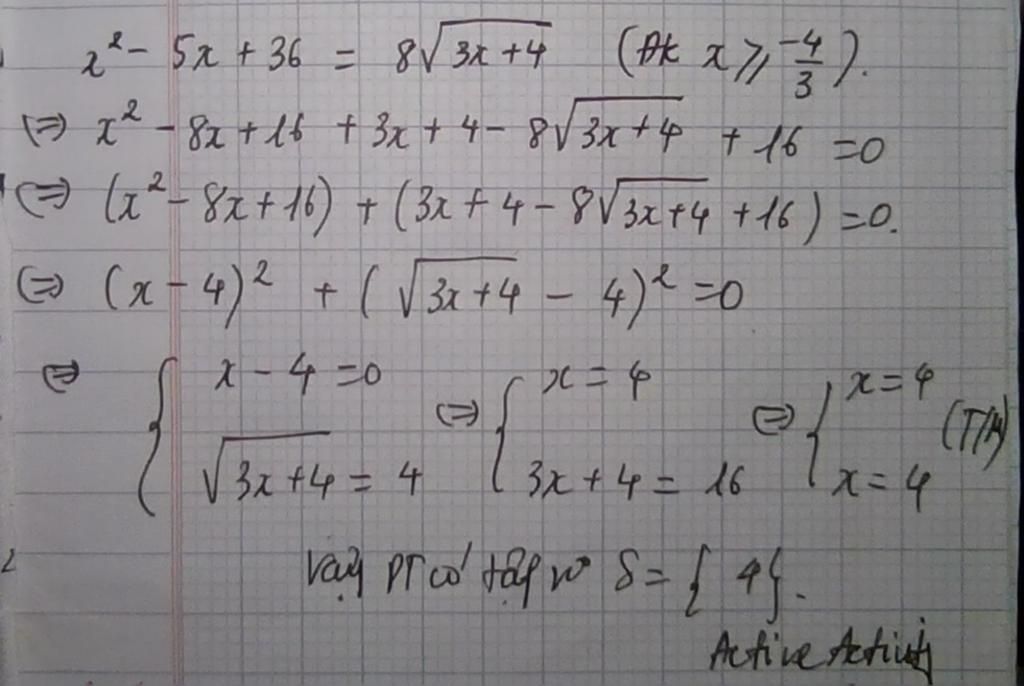 x² - 5x + 36 = 8√(3x+4) (ĐK x ≥ -4/3).
(=) x² - 8x + 16 + 3x + 4 - 8√(3x+4) + 16 = 0
(=) (x² - 8x + 16) + (3x + 4 - 8√(3x+4) + 16) = 0.
(=) (x - 4)² + (√(3x+4) - 4)² = 0
(=) { x - 4 = 0 (=) { x = 4 (=) { x = 4 (T/M)
√(3x+4) = 4 3x + 4 = 16 x = 4
Vậy PT có tập n° S = { 4 }.
Active Activity